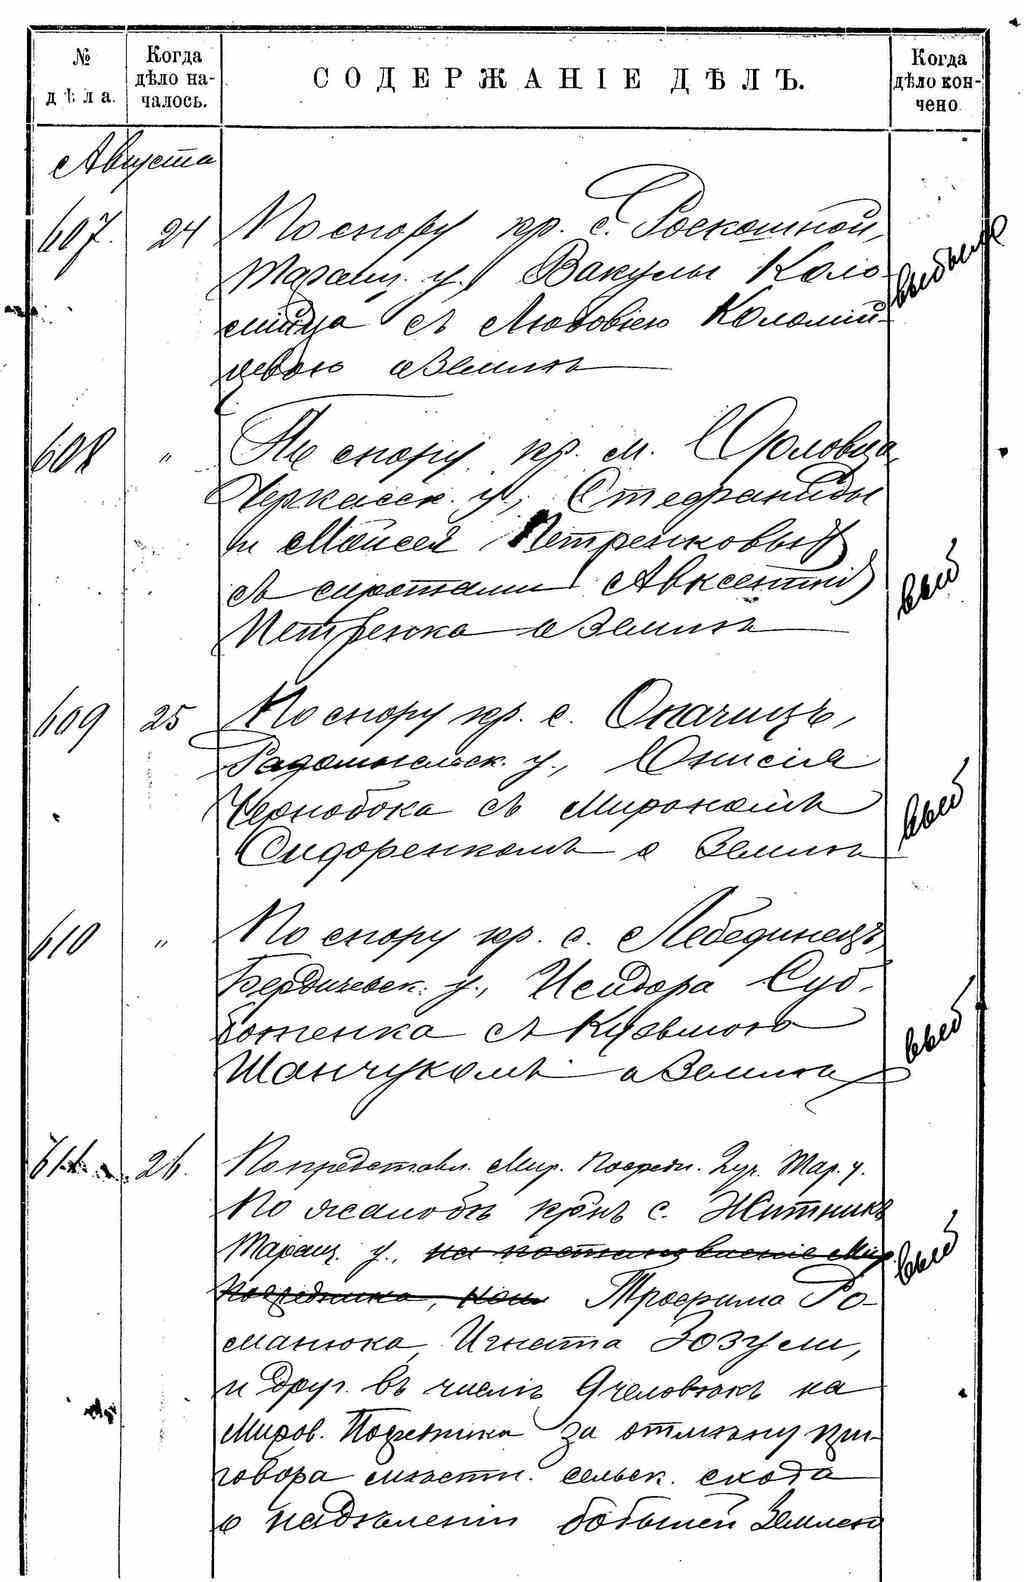 № дѣла.
Когда дѣло на-чалось.
СОДЕРЖАНІЕ ДѢЛЪ.
Когда дѣло кон-чено
Августа
607. 24 По спору кр. с. Роскошной,
Таращ. у. Вакулы Коло-
мійца съ Любовію Коломій-
цевою о Землѣ
выбыло
608 " По спору кр. м. Орловца
Черкасск. у., Стефаниды
и Моисея Петренковых
съ сиротами Авксентія
Петренка о Землѣ
выб
609 25 По спору кр. с. Опачичъ,
Радомысльск. у., Онисія
Чернобока съ Мирономъ
Сидоренкомъ о Землѣ
выб
610 " По спору кр. с. Лебединецъ,
Бердичевск. у., Исидора Суб-
ботенка съ Кузьмою
Шанчукомъ о Землѣ
выб
611 26. По представл. Мир. Посредн. Тар. у.
По жалобѣ крнъ с. Житникъ
Таращ. у., на постановленіе Мир.
Посредника, кои Трофима Ро-
манюка, Игната Зозули,
и друг. въ числѣ 9 человѣкъ на
Миров. Посредника за отмѣну при-
говора мѣстн. сельск. схода
о надѣленіи бобылей Землею
выб